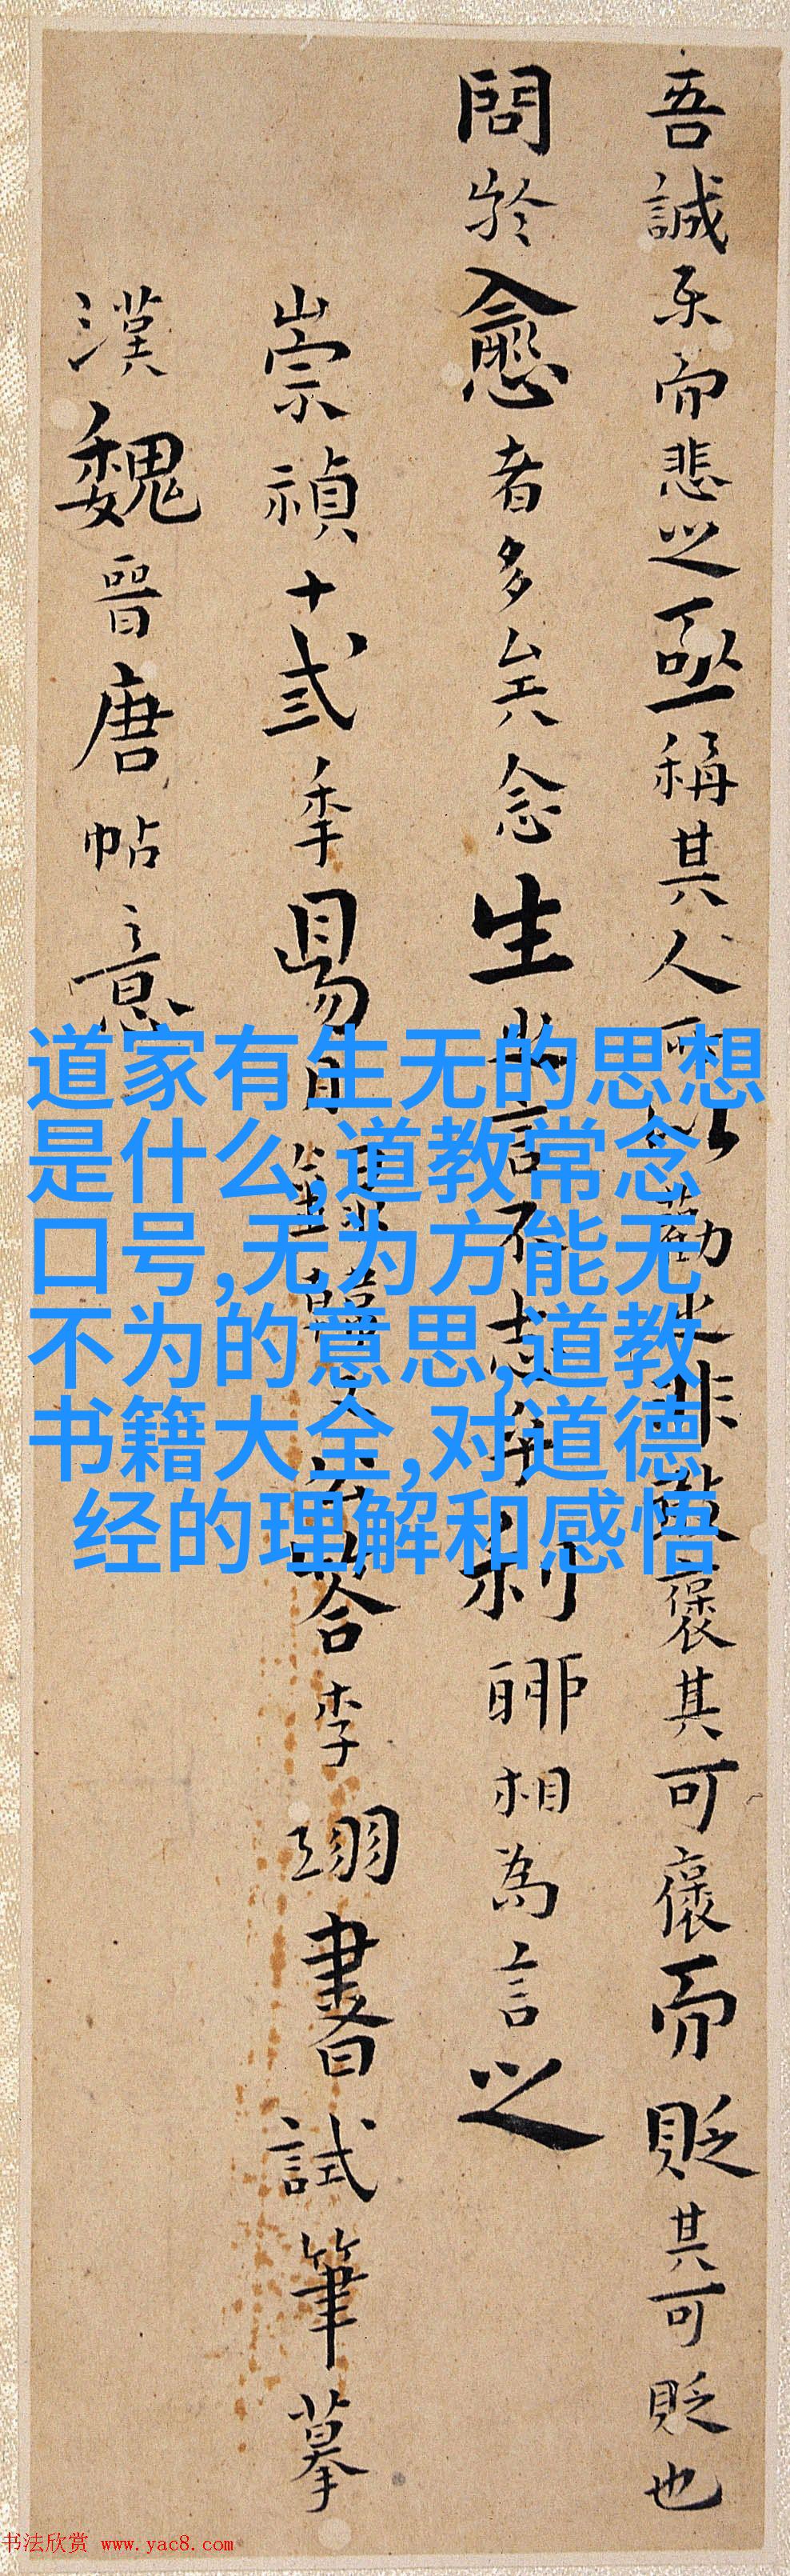 吾誠乐而悲之亟稱其人所以勸之非敢褒其可褒而貶其可貶也
問於愈者多矣念生之言不志乎利聊相為言之
崇禎十弎秊昜月錄韓文公答李翊書試筆摹
漢魏晉唐帖意
道家有生无的思想
是什么,道教常念
口号,无为方能无
不为的意思,道教
书籍大全,对道德
经的理解和感悟
书法欣赏 www.yac8.com